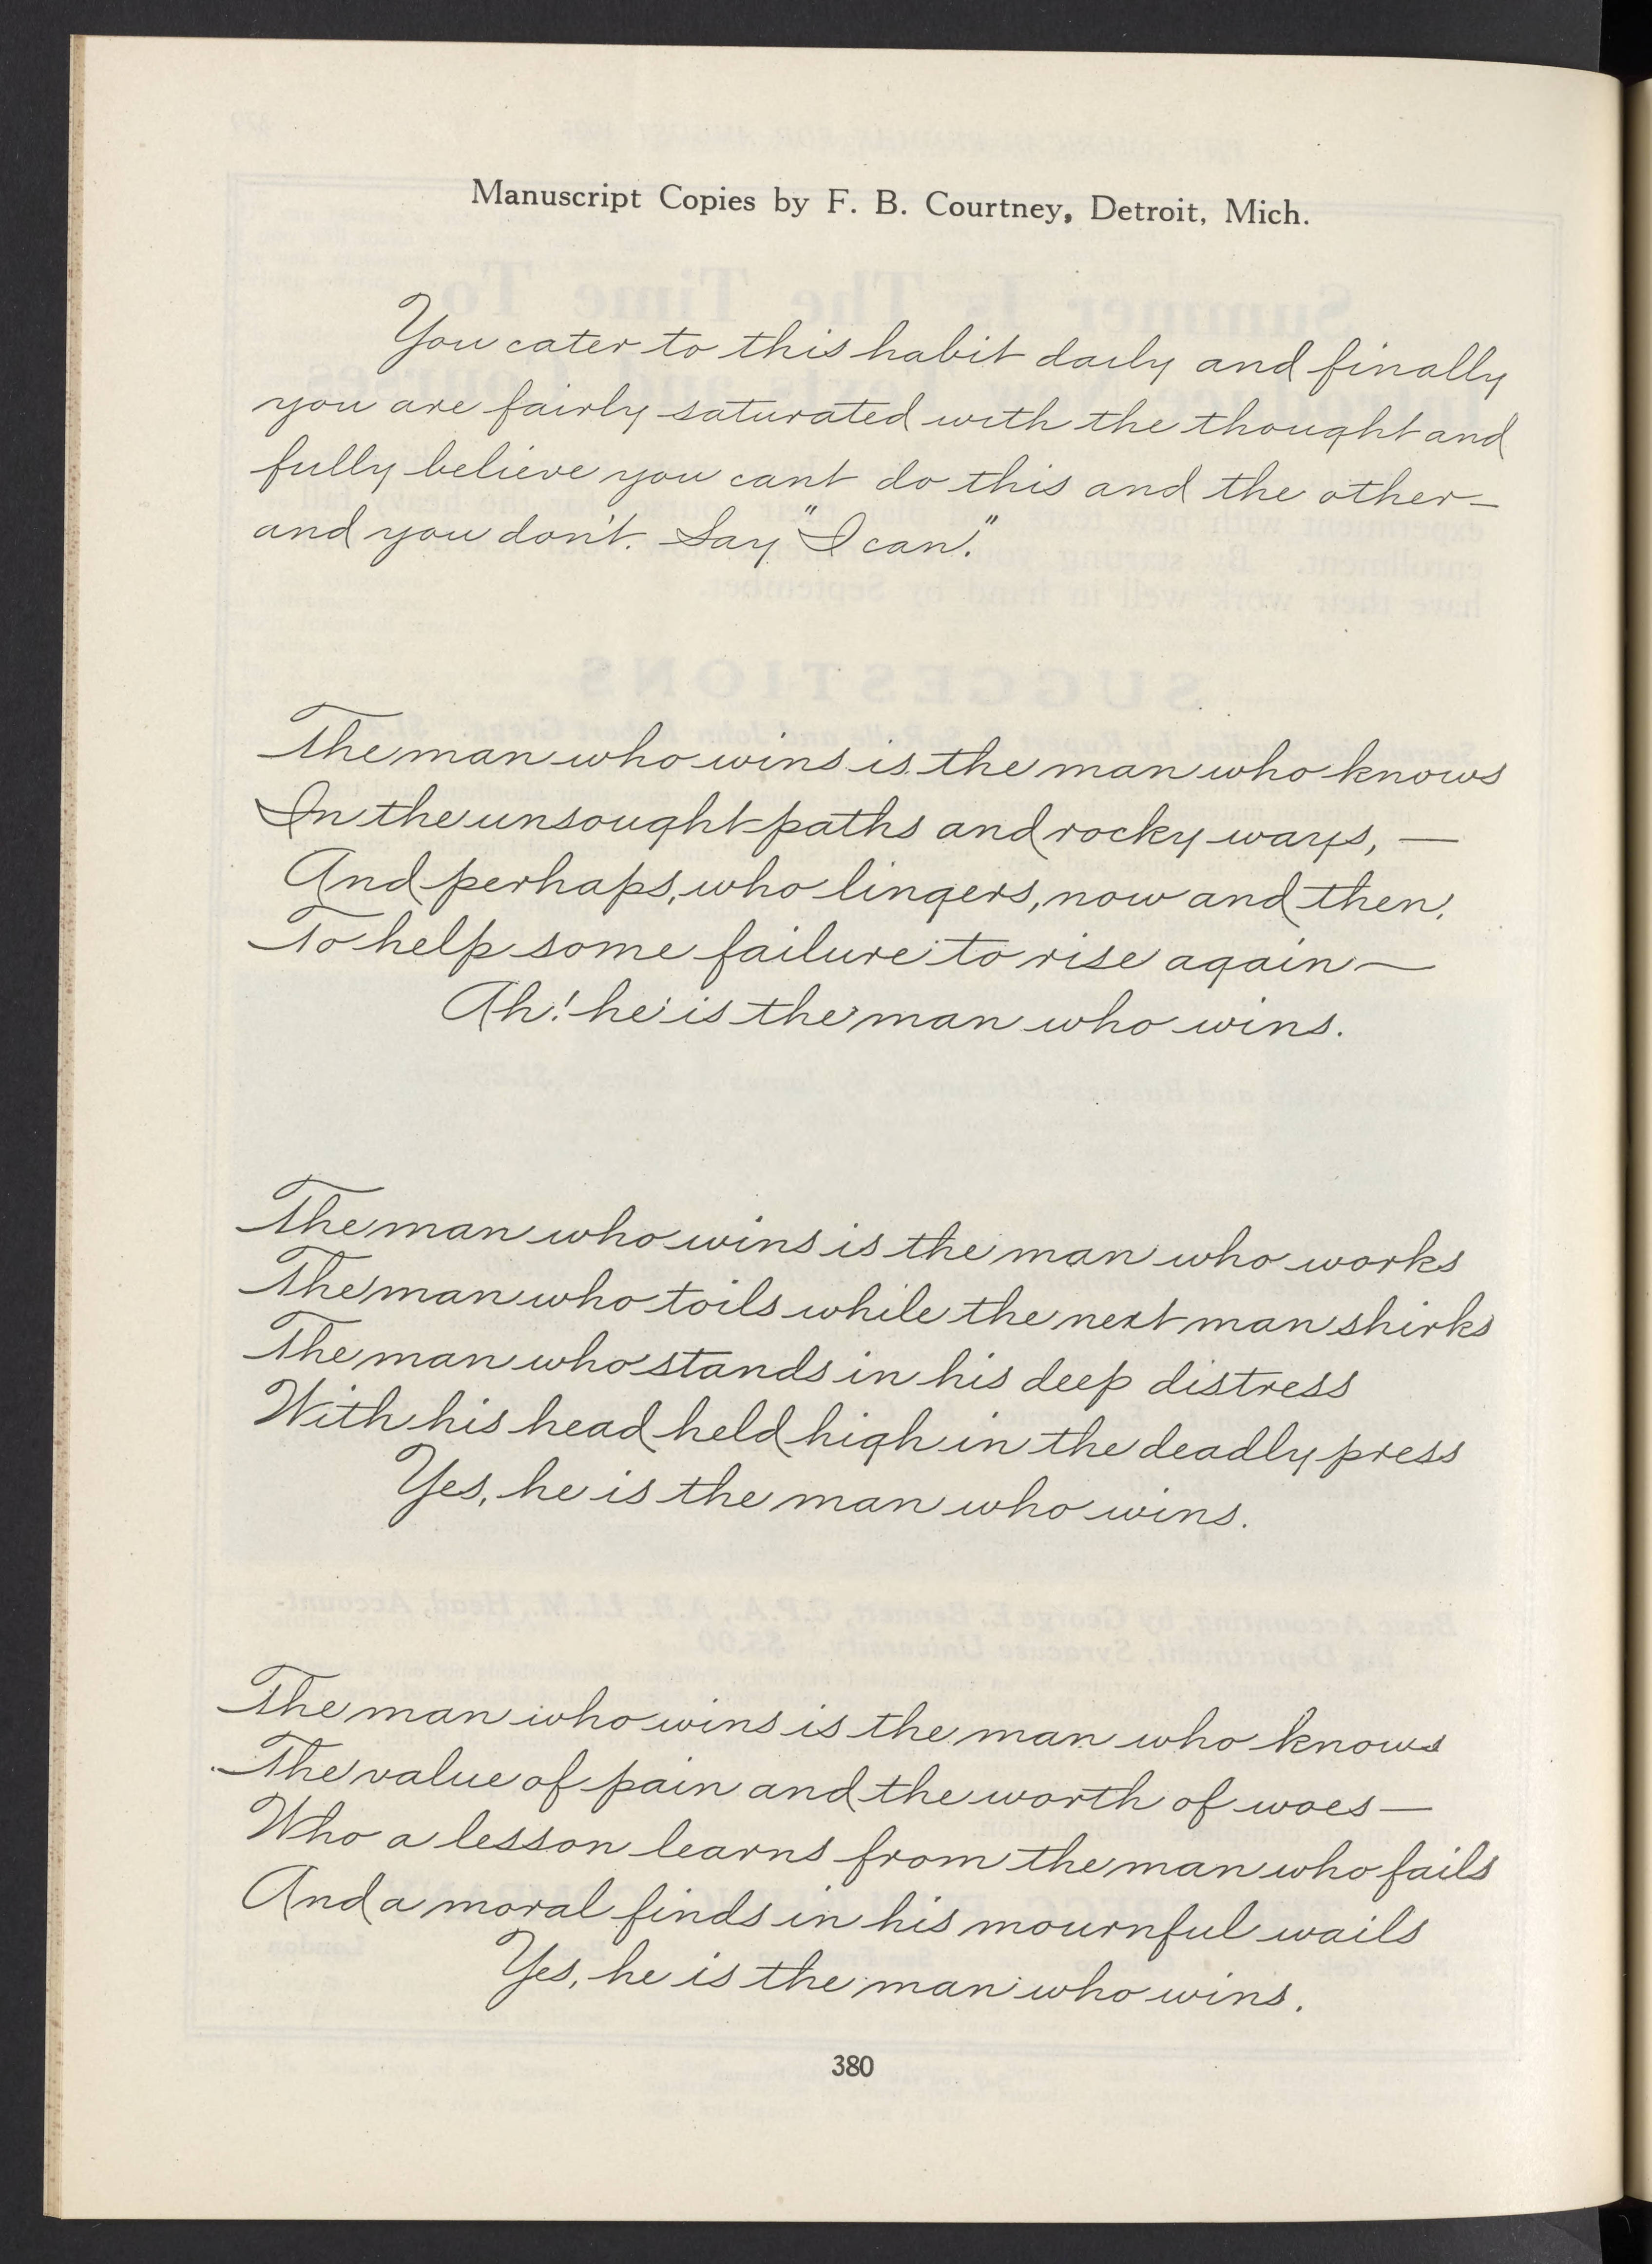 Manuscript Copies by F. B. Courtney, Detroit, Mich.
You cater to this habit daily and finally
you are fairly saturated with the thought and
fully believe you cant do this and the other—
and you don't. Say "I can."
The man who wins is the man who knows
In the unsought paths and rocky ways, —
And perhaps, who lingers, now and then,
To help some failure to rise again —
Ah! he is the man who wins.
The man who wins is the man who works
The man who toils while the next man shirks
The man who stands in his deep distress
With his head held high in the deadly press
Yes, he is the man who wins.
The man who wins is the man who knows
The value of pain and the worth of woes —
Who a lesson learns from the man who fails
And a moral finds in his mournful wails
Yes, he is the man who wins.
380